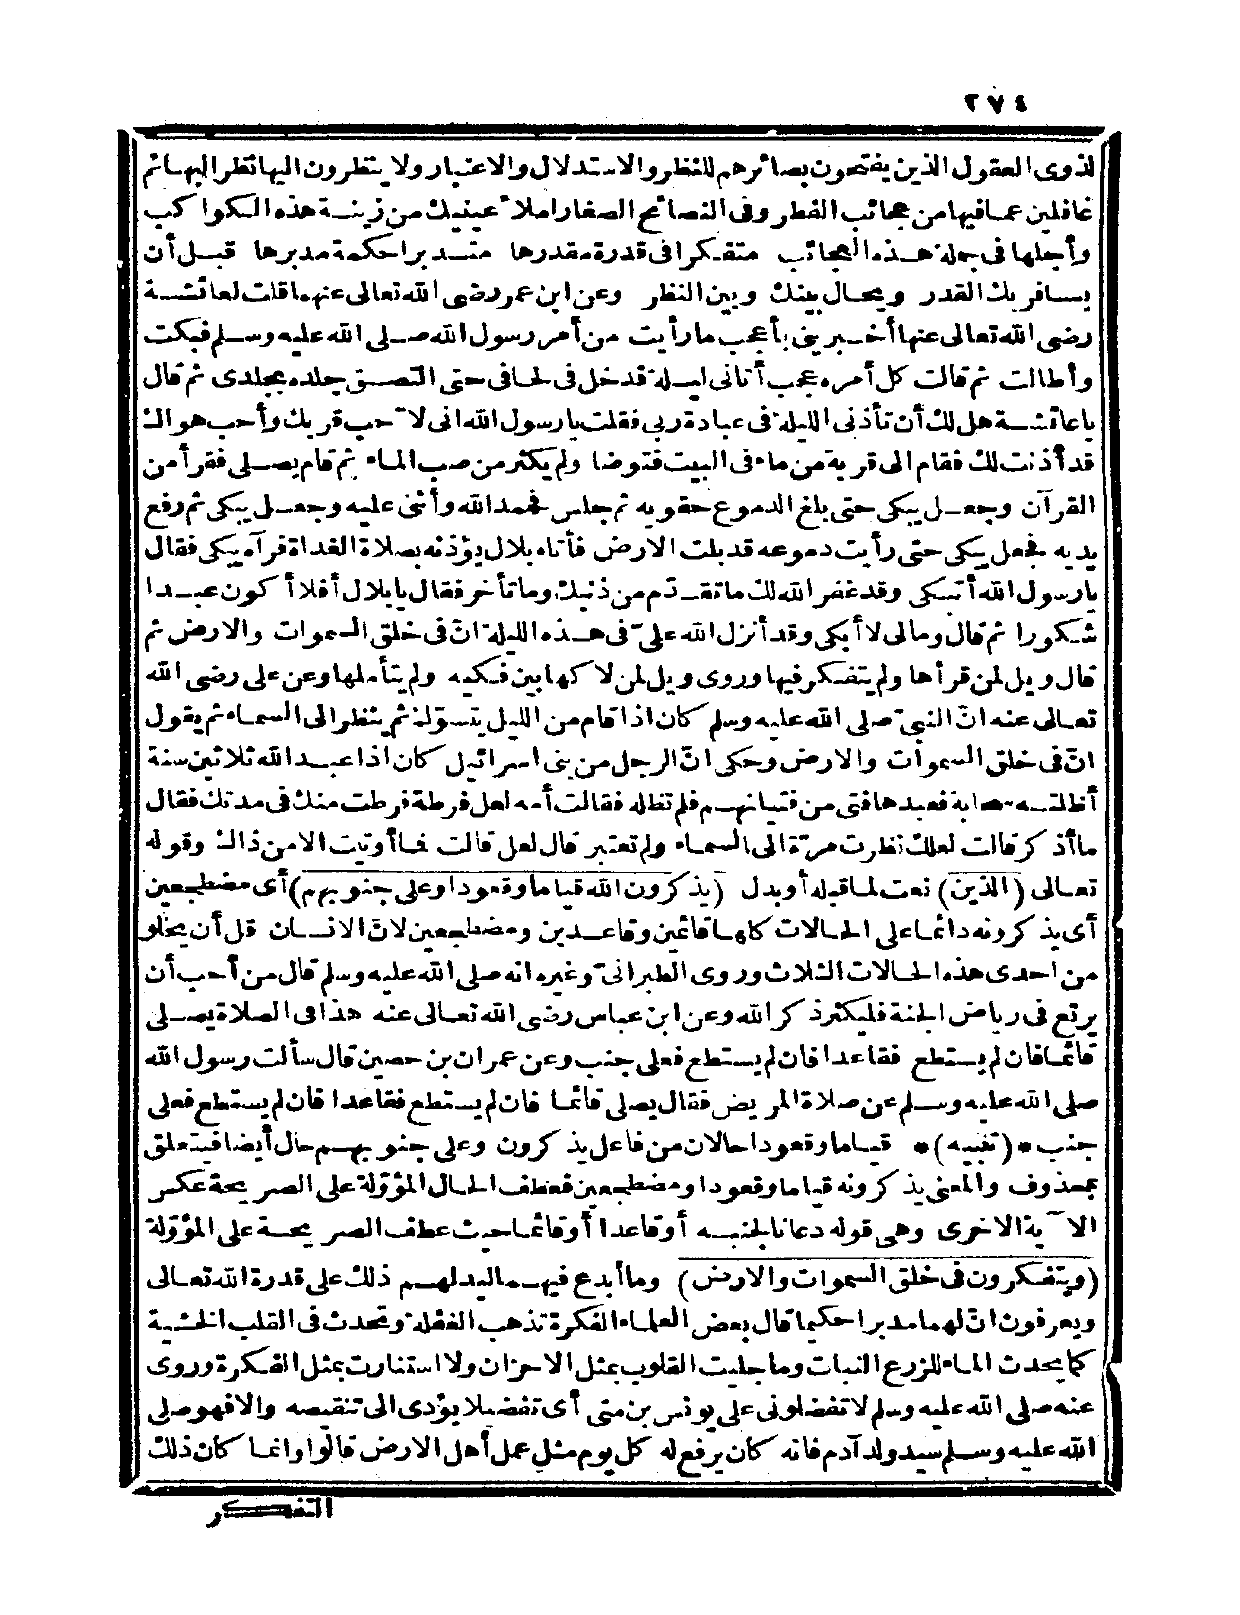 ٢٧٤
لذوى العقول الذين يفتحون بصائرهم للنظر والاستدلال والاعتبار ولا ينظرون اليها نظر البهائم
غافلين عما فيها من عجائب الفطر وفى النصائح الصغار املا ٔ عينيك من زينة هذه الكواكب
وأجلها فى جملة هذه العجائب متفكرا فى قدرة مقدرها متدبرا حكمة مدبرها قبل أن
يسافر بك القدر ويحال بينك وبين النظر وعن ابن عمر رضى الله تعالى عنهما قلت لعائشة
رضى الله تعالى عنها أخبرينى بأعجب ما رأيت من أمر رسول الله صلى الله عليه وسلم فبكت
وأطالت ثم قالت كل أمره عجب أتانى ليلة قد دخل فى لحافى حتى التصق جلده بجلدى ثم قال
يا عائشة هل لك أن تأذنى الليلة فى عبادة ربى فقلت يا رسول الله انى لا ٔحب قربك وأحب هواك
قد أذنت لك فقام الى قربة من ماء فى البيت فتوضا ولم يكثر من صب الماء ثم قام يصلى فقرأ من
القرآن وجعل يبكى حتى بلغ الدموع حقويه ثم جلس فحمد الله وأثنى عليه وجعل يبكى ثم رفع
يديه فجعل يبكى حتى رأيت دموعه قد بلت الارض فأتاه بلال يؤذنه بصلاة الغداة فرآه يبكى فقال
يا رسول الله أتبكى وقد غفر الله لك ما تقدّم من ذنبك وما تأخر فقال يا بلال أفلا أكون عبدا
شكورا ثم قال ومالى لا أبكى وقد أنزل الله علىّ فى هذه الليلة انّ فى خلق السموات والارض ثم
قال ويل لمن قرأها ولم يتفكر فيها وروى ويل لمن لاكها بين فكيه ولم يتأملها وعن على رضى الله
تعالى عنه انّ النبىّ صلى الله عليه وسلم كان اذا قام من الليل يتسوّك ثم ينظر الى السماء ثم يقول
انّ فى خلق السموات والارض وحكى انّ الرجل من بنى اسرائيل كان اذا عبد الله ثلاثين سنة
أظلته سحابة فعبدها فتى من فتيانهم فلم تظله فقالت أمه لعل فرطة فرطت منك فى مدتك فقال
ما أذكر قالت لعلك نظرت مرّة الى السماء ولم تعتبر قال لعل قالت فما أوتيت الا من ذاك وقوله
تعالى (الذين) نعت لما قبله أو بدل (يذكرون الله قياما وقعودا وعلى جنوبهم) أى مضطجعين
أى يذكرونه دائما على الحالات كلها قائمين وقاعدين ومضطجعين لانّ الانسان قل أن يخلو
من احدى هذه الحالات الثلاث وروى الطبرانىّ وغيره انه صلى الله عليه وسلم قال من أحب أن
يرتع فى رياض الجنة فليكثر ذكر الله وعن ابن عباس رضى الله تعالى عنه هذا فى الصلاة يصلى
قائما فان لم يستطع فقاعدا فان لم يستطع فعلى جنب وعن عمران بن حصين قال سألت رسول الله
صلى الله عليه وسلم عن صلاة المريض فقال يصلى قائما فان لم يستطع فقاعدا فان لم يستطع فعلى
جنب * (تنبيه) * قياما وقعودا حالان من فاعل يذكرون وعلى جنوبهم حال أيضا فيتعلق
بمحذوف والمعنى يذكرونه قياما وقعودا ومضطجعين فعطف الحال المؤوّلة على الصريحة عكس
الا ٓية الاخرى وهى قوله دعانا لجنبه أو قاعدا أو قائما حيث عطف الصريحة على المؤوّلة
(ويتفكرون فى خلق السموات والارض) وما أبدع فيهما ليدلهم ذلك على قدرة الله تعالى
ويعرفون انّ لهما مدبرا حكيما قال بعض العلماء الفكرة تذهب الغفلة وتحدث فى القلب الخشية
كما يحدث الماء للزرع النبات وما جليت القلوب بمثل الاحزان ولا استنارت بمثل الفكرة وروى
عنه صلى الله عليه وسلم لا تفضلونى على يونس بن متى أى تفضيلا يؤدى الى تنقيصه والا فهو صلى
الله عليه وسلم سيد ولد آدم فانه كان يرفع له كل يوم مثل عمل أهل الارض قالوا وانما كان ذلك
التفكر